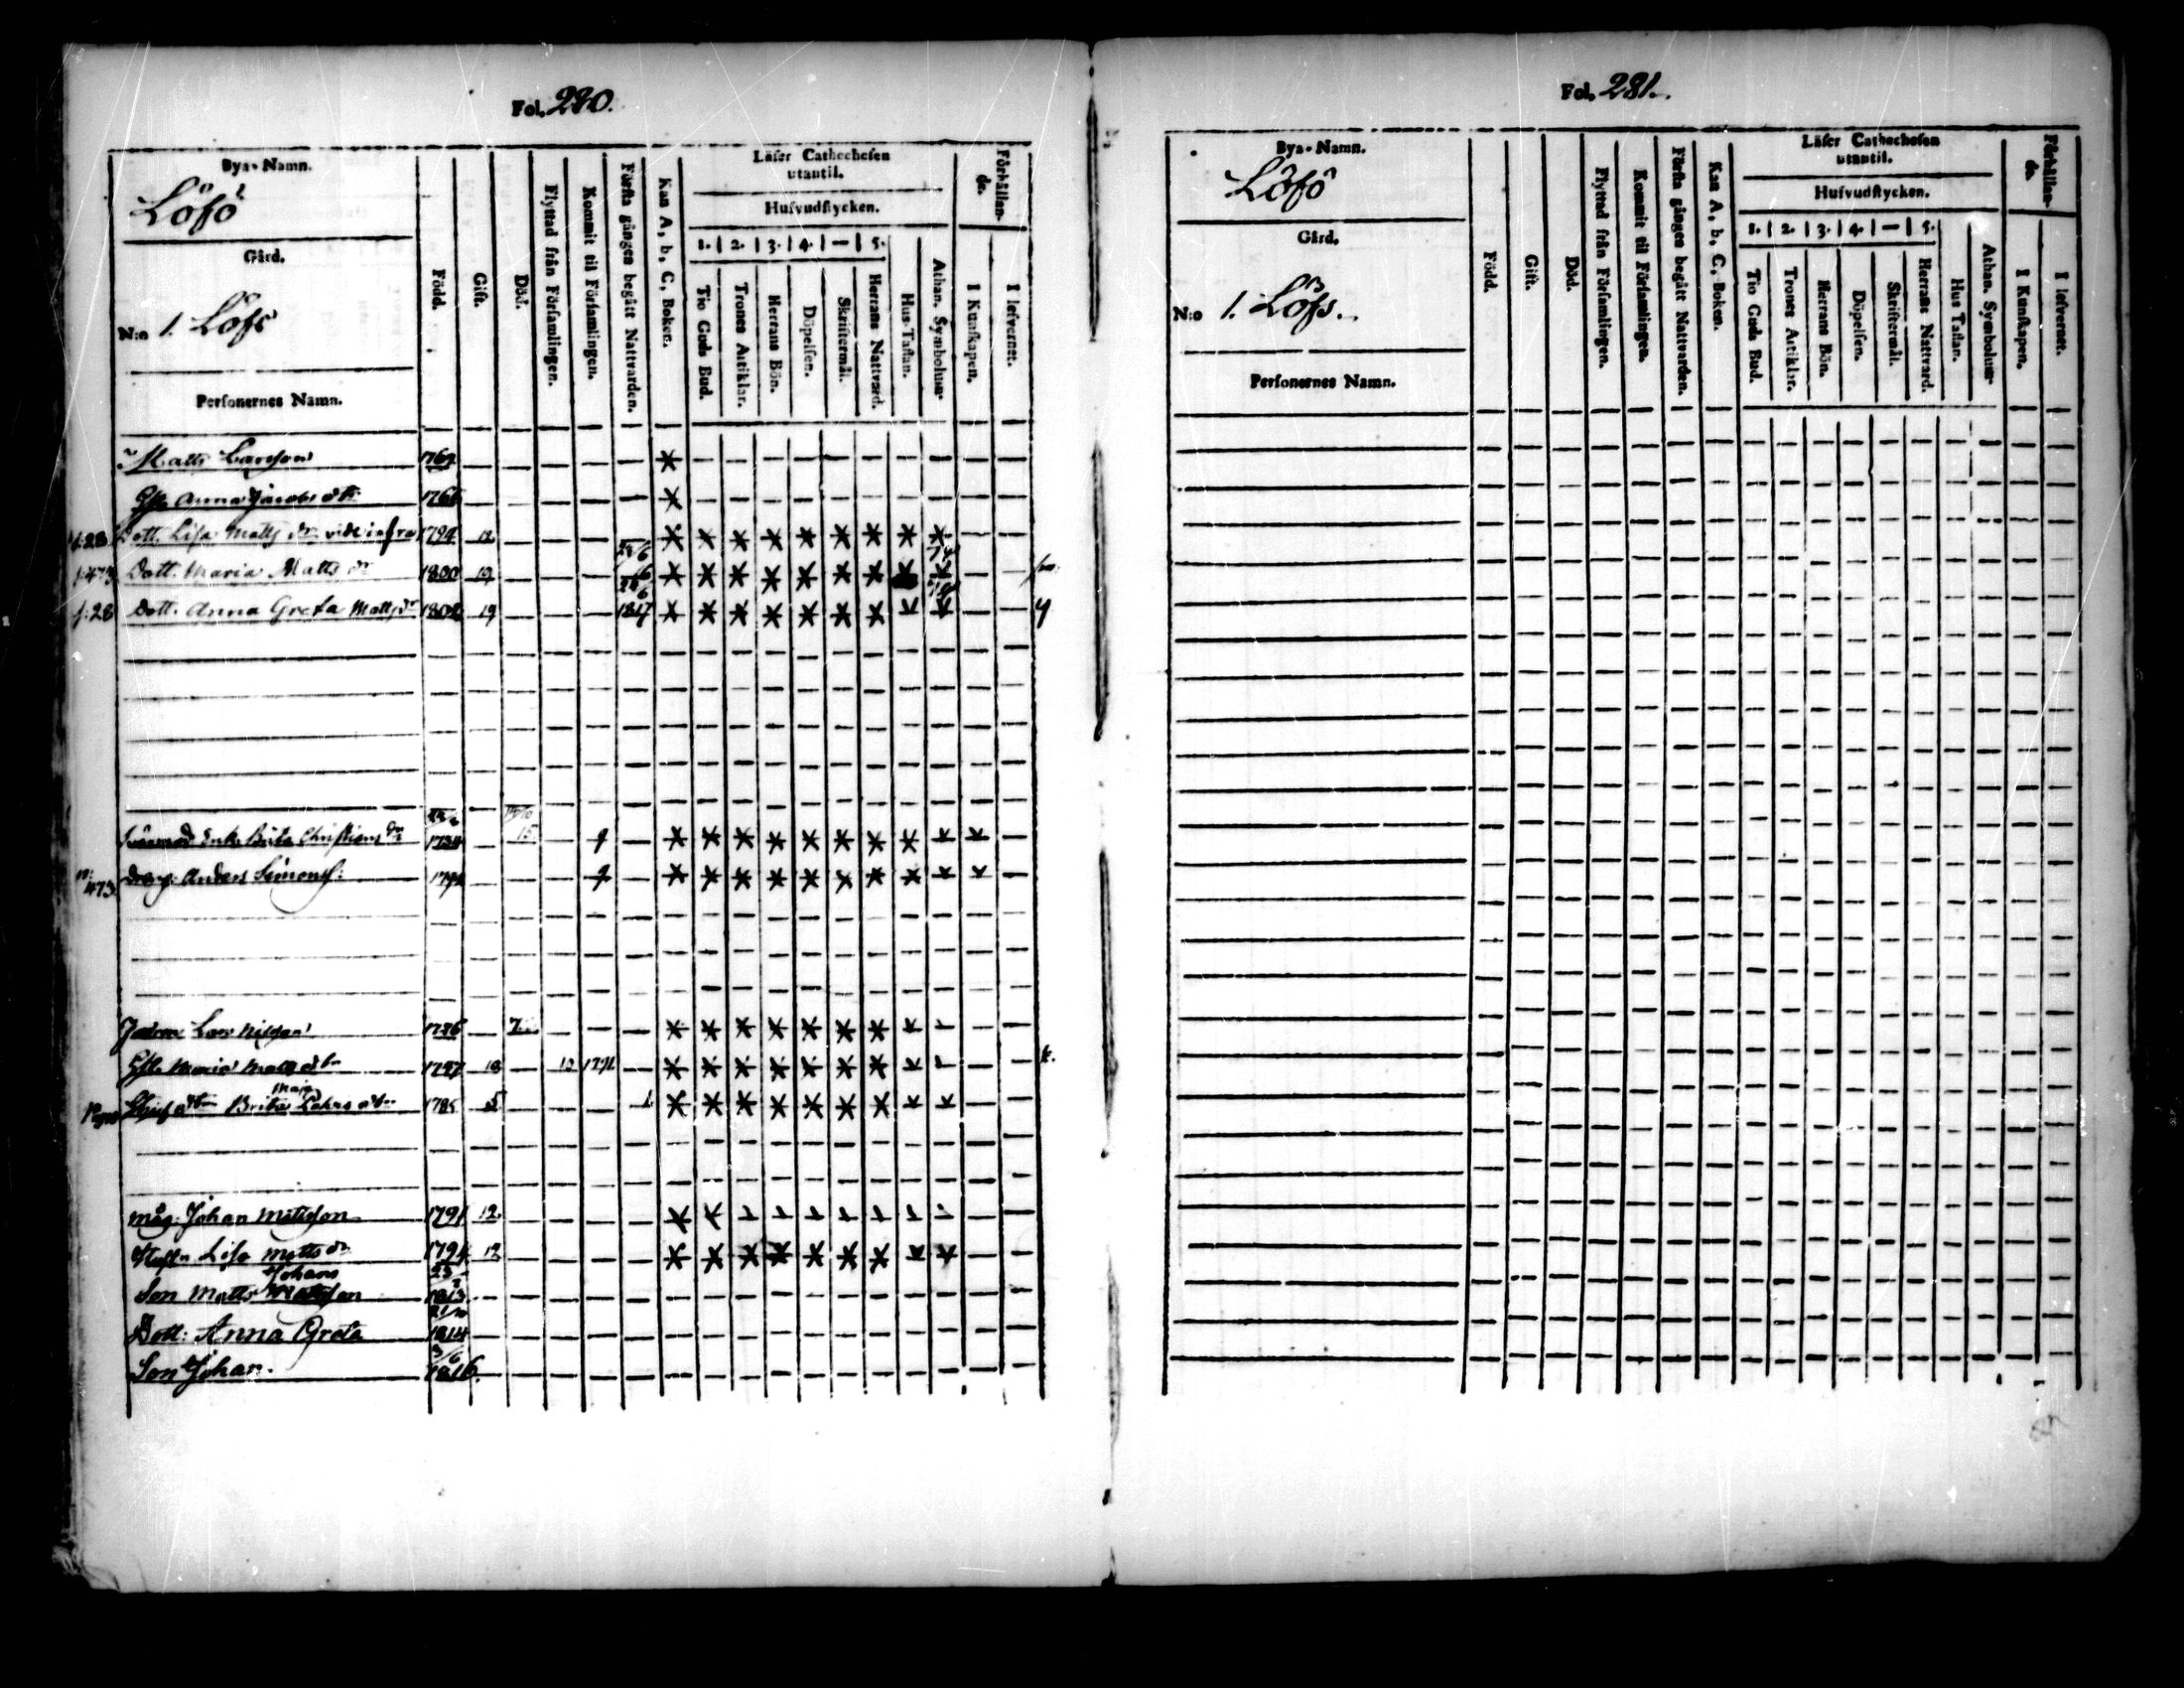 Fol. 280.
Bya-Namn.
Löfö
Gård.
N:o 1. Löfs
Personernes Namn.
Född.
Gift.
Död.
Flyttad från Församlingen.
Kommit til Församlingen.
Första gången begått Nattvarden.
Kan A, b, C, Boken.
Läser Cathechesen utantil.
Hufvudstycken.
1. 2. 3. 4. — 5.
Tio Guds Bud.
Trones Artiklar.
Herrans Bön.
Döpelsen.
Skriftermål.
Herrans Nattvard.
Hus-Taflan.
Athan. Symbolum
Förhållande.
I Kunskapen.
I lefvernet.
Matts Larsson
Anna Jacobs dtr 1766
Dott. Lisa Matts dr vide infra 1794 12
Dott. Maria Matts dr 1800 19
f. 28 Dott. Anna Greta Matts dr 1802 19 1817
Enk. Brita Christians dr 1734 15
473 Dreng. Anders Simonss: 1794
Lars Nilsson 1726
Maria Matts dtr 1727 18
Brita Maja Lahrs dtr 1785
måg. Johan Mattsson 1791 12
Hust. Lisa Matts dr 1794 12
Son Matts Johans 23/2 1813
Dott: Anna Greta 21/10 1814
Son Johan. 3/6 1816
Fol. 281.
Bya-Namn.
Löfö
Gård.
N:o 1. Löfs.
Personernes Namn.
Född.
Gift.
Död.
Flyttad från Församlingen.
Kommit til Församlingen.
Första gången begått Nattvarden.
Kan A, b, C, Boken.
Läser Cathechesen utantil.
Hufvudstycken.
1. 2. 3. 4. — 5.
Tio Guds Bud.
Trones Artiklar.
Herrans Bön.
Döpelsen.
Skriftermål.
Herrans Nattvard.
Hus Taflan.
Athan. Symbolum
Förhållande.
I Kunskapen.
I lefvernet.